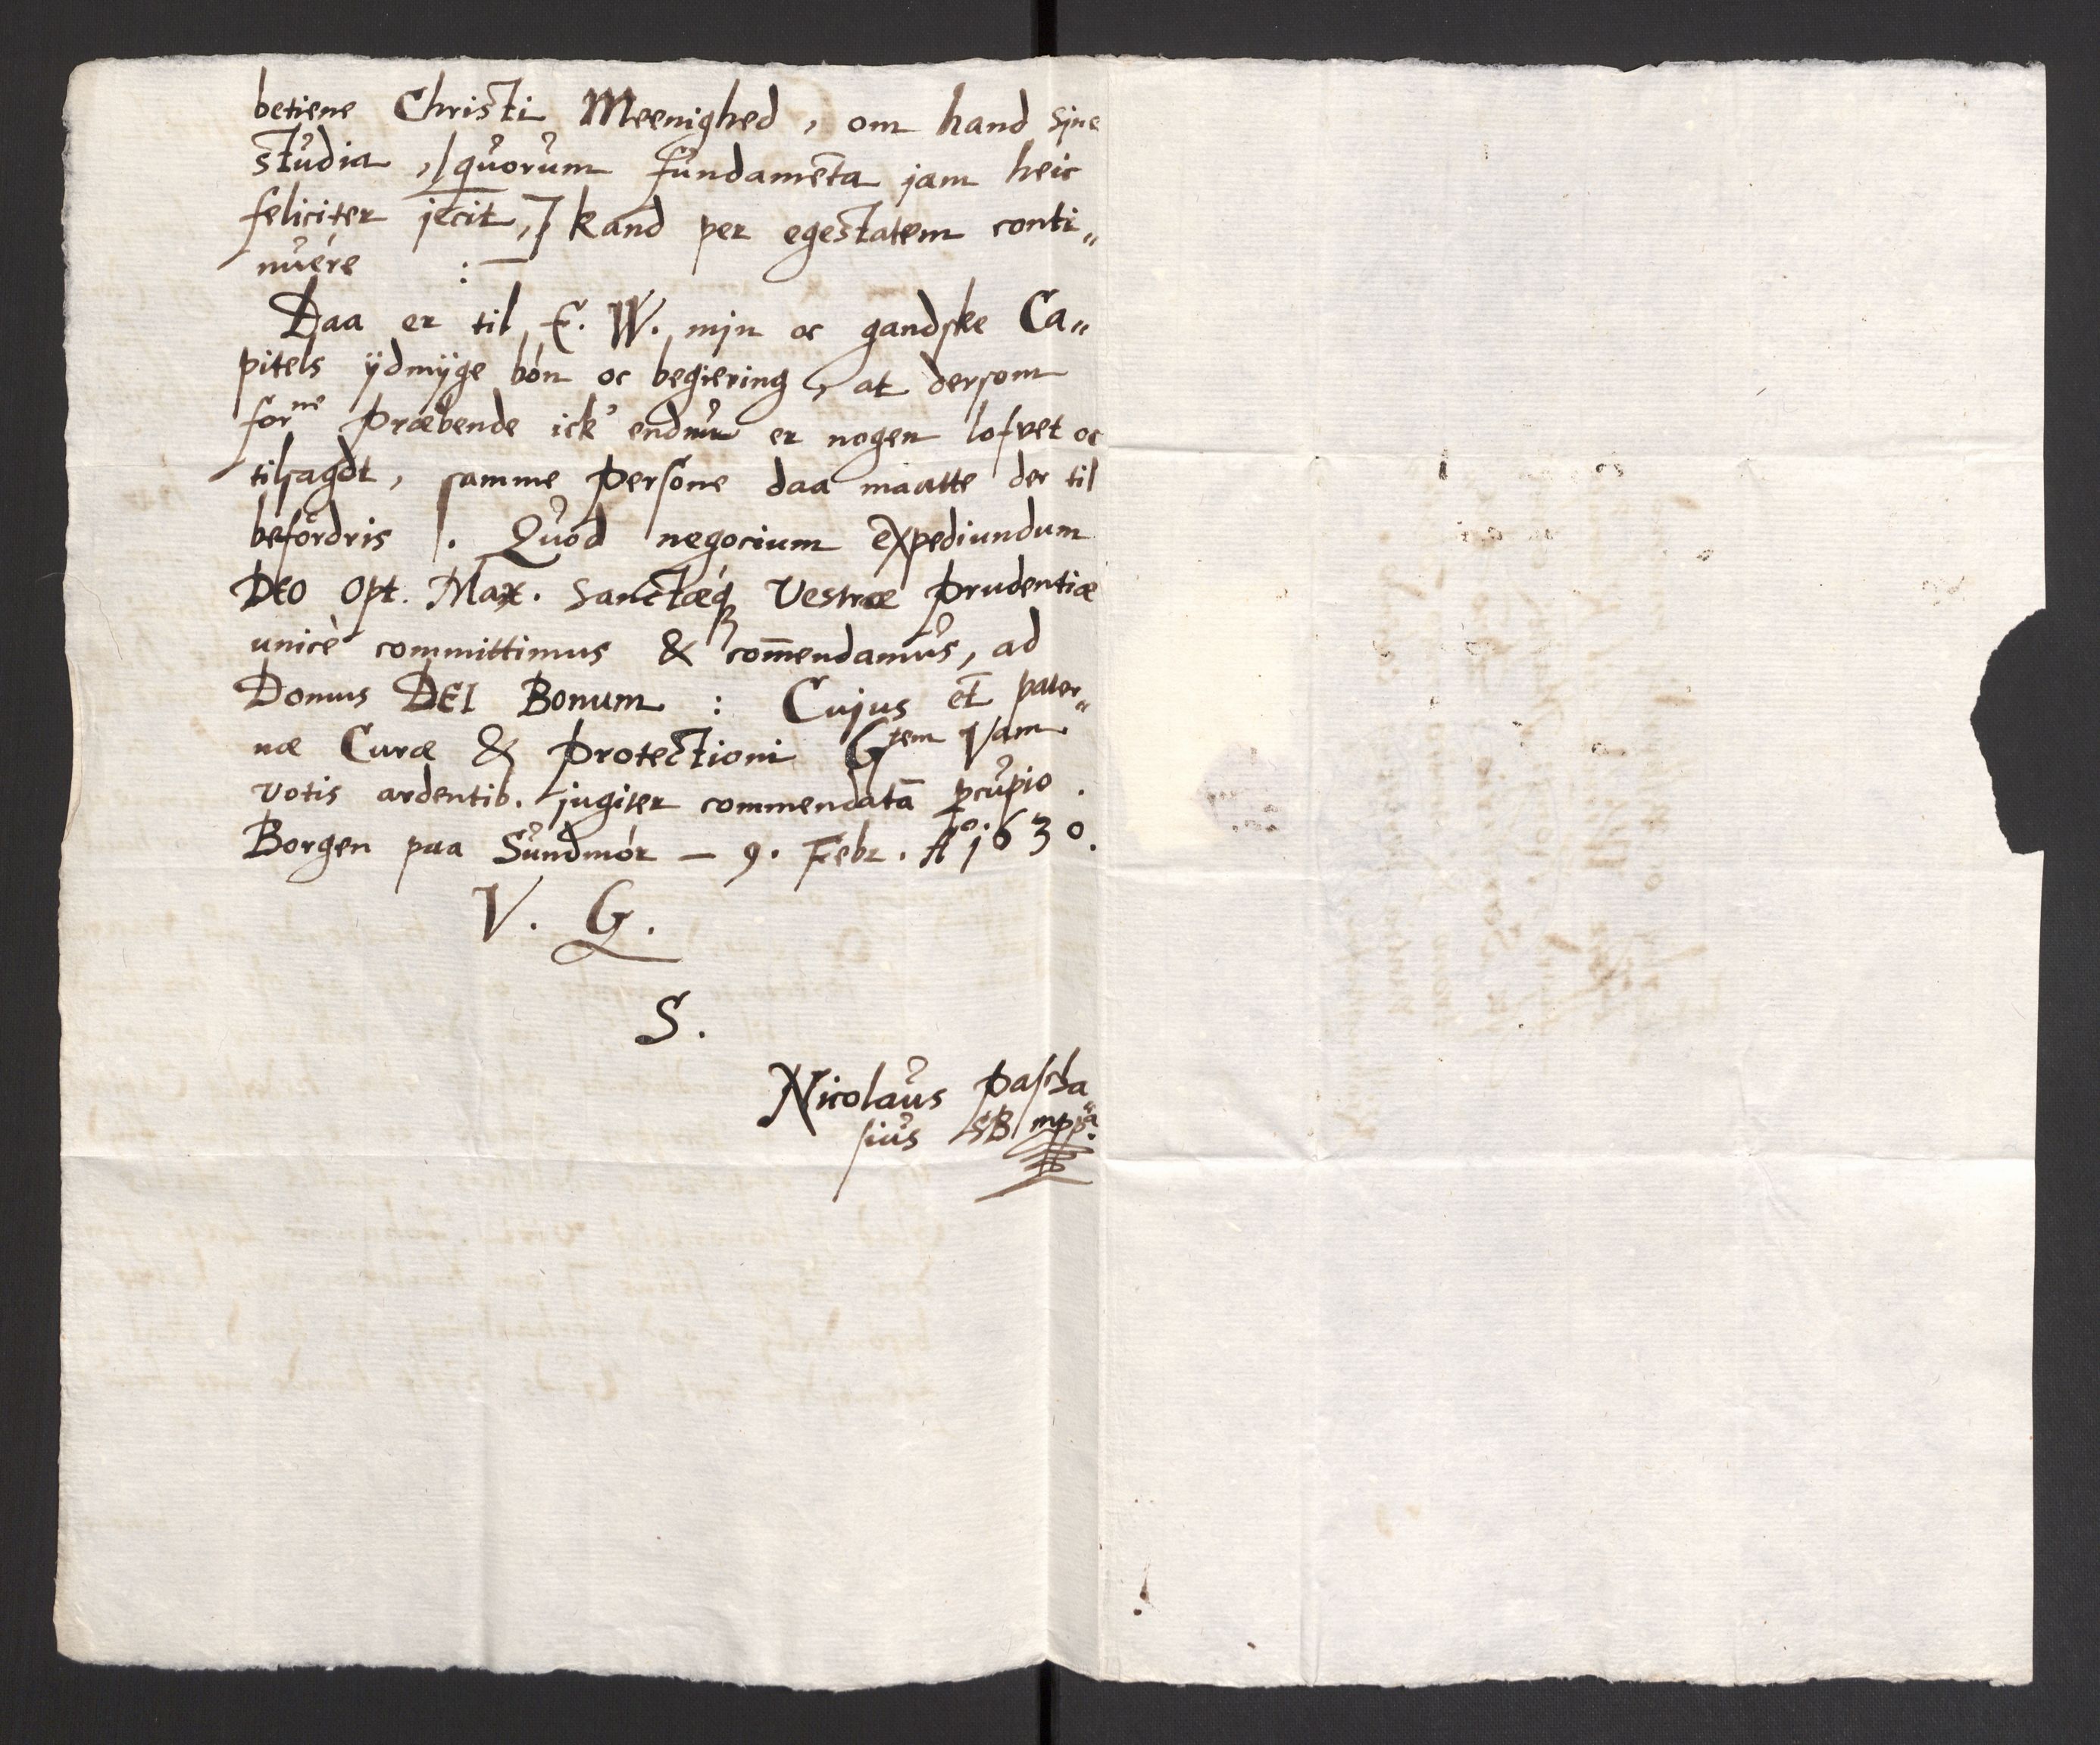 betiene Christi Meenighed, om hand sjne
studia, [quorum fundameta jam heic
feliciter jecit,] kand per egestatem conti„
nuére :—
Daa er til E. W. mjn oc gandske Ca„
pitels ÿdmÿge bón oc begiering, at dersom
forne Præbende ick' endnu er nogen lofvet oc
tilsagdt, samme Persone daa maatte der til
befórdris. Quod negocium expediundum
DEO Opt. Max. Sanctæq3 Vestræ Prudentiæ
unicè committimus & com̄endamus, ad
Domus DEI Bonum : Cujus et pater„
næ Curæ & Protectioni Gtem Vam
votis ardentib. jugiter commendatā pcupio.
Borgen paa Sundmór — 9. Febr. Ao 1630.
V. G.
S.
Nicolaus Pascha„
sius SB mppa.